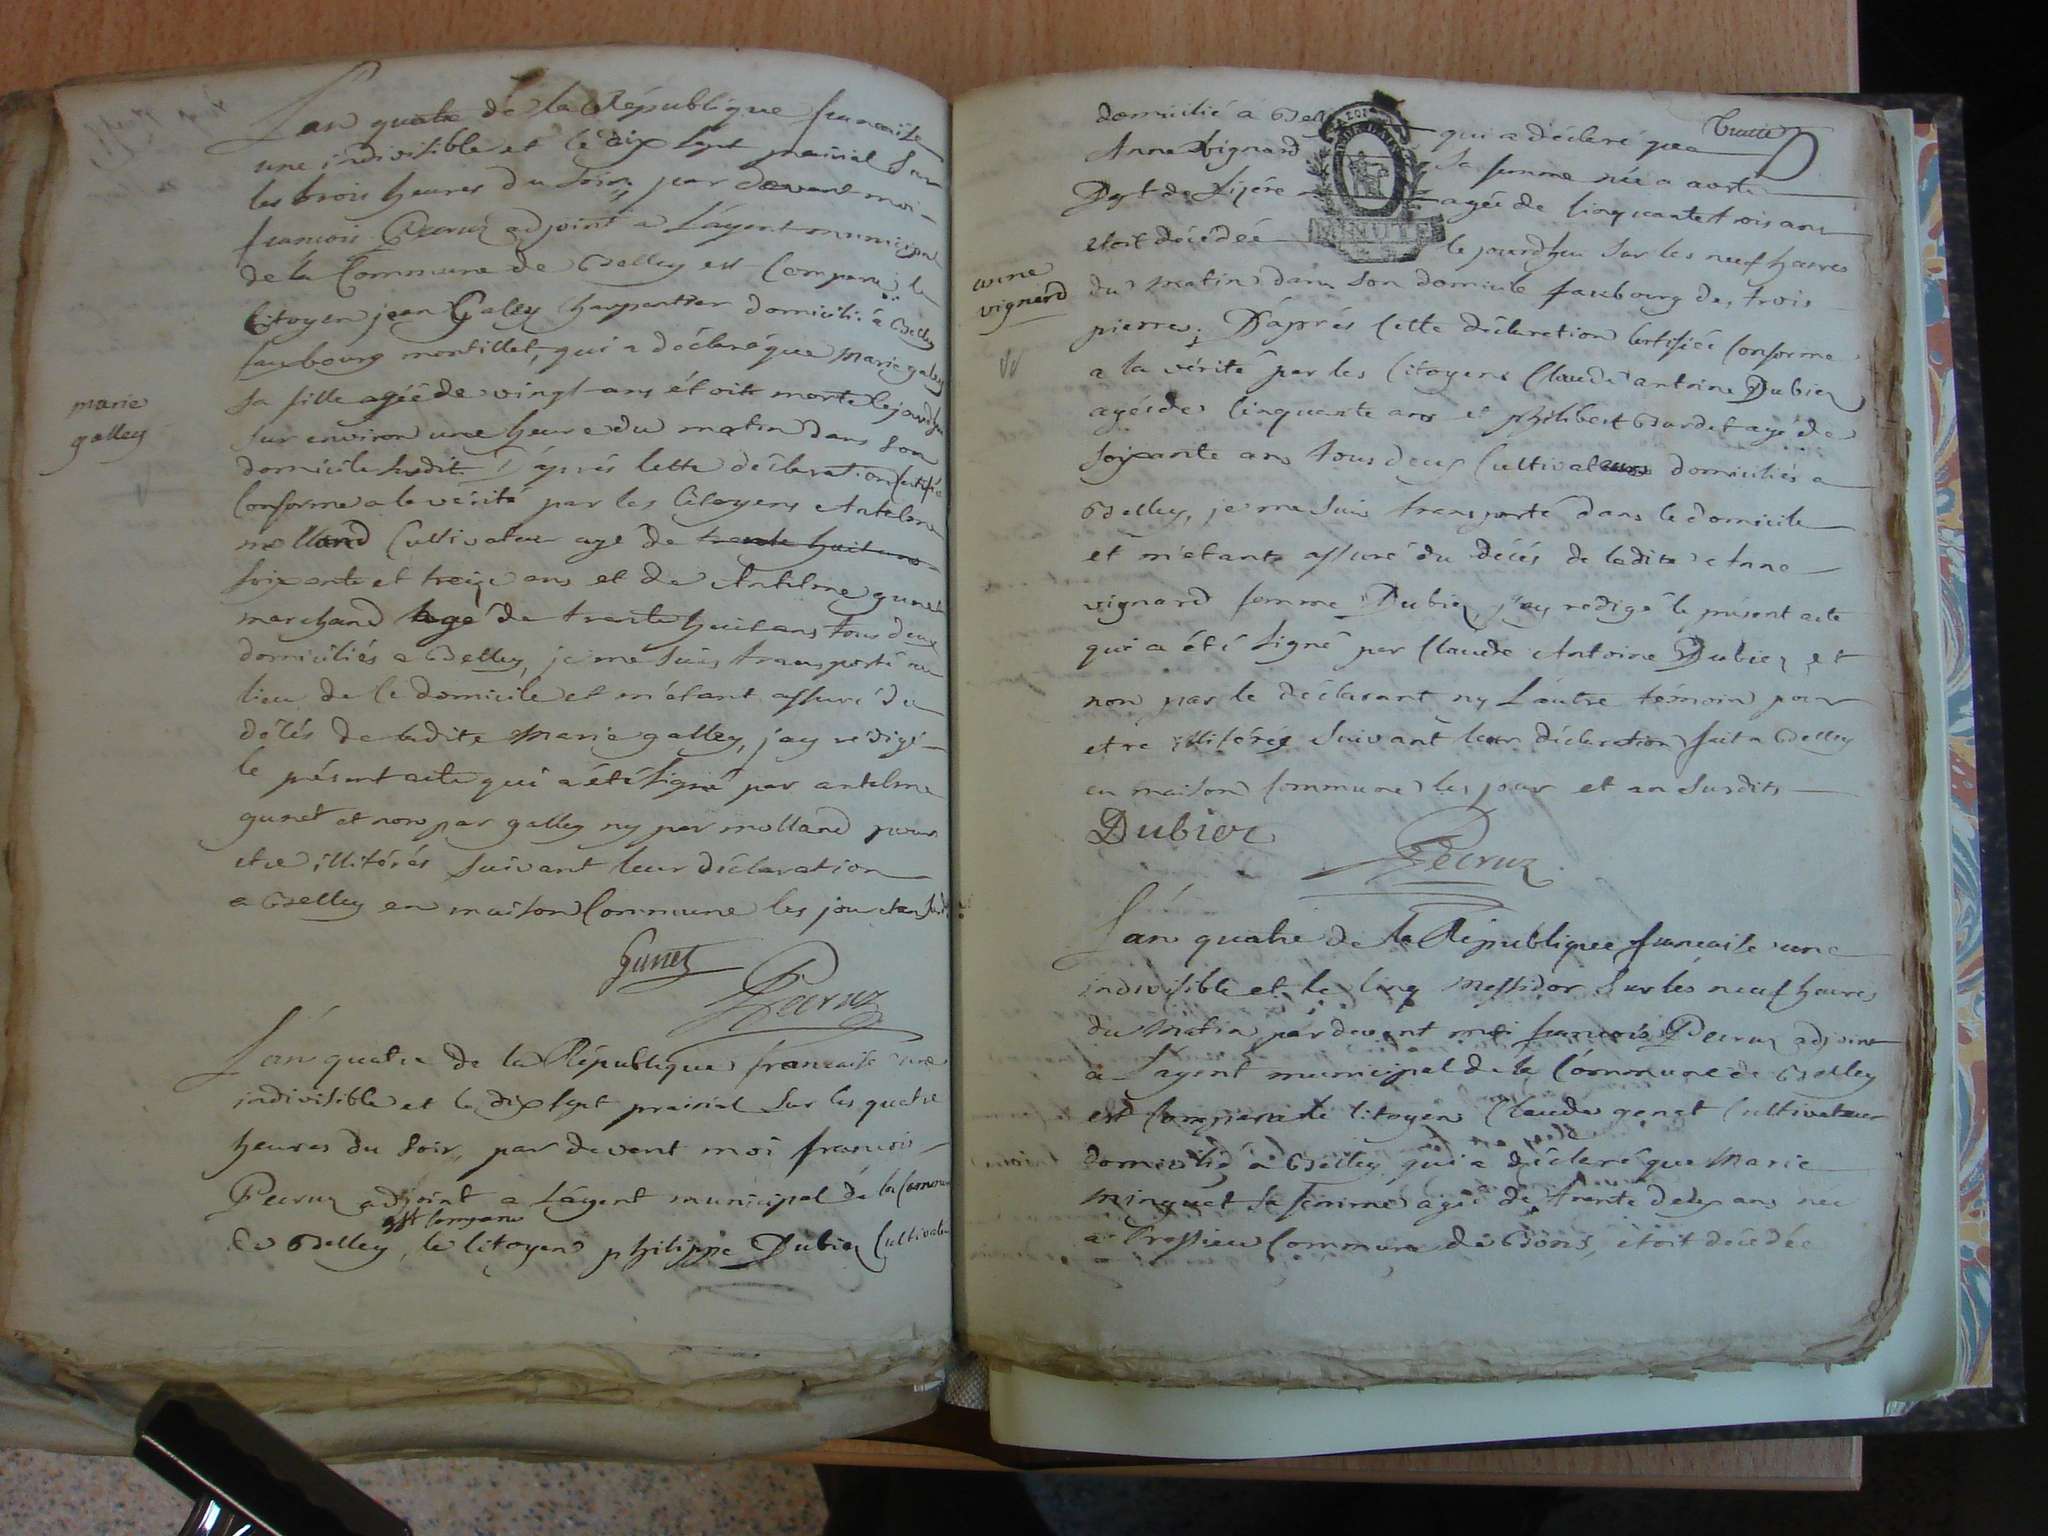 L'an quatre de la République francaise
une indivisible et le dix sept prairial sur
les trois heures du soir, par devant moi
francois Pecruz adjoint a L'agent municipal
de la Commune de Belley est Comparu le
Citoyen jean Galey Charpantier domicilié a Belley
faubourg montillet, qui a déclaré que Marie galey
sa fille agée de vingt ans étoit morte cejourdhui
sur environ une heure du matin dans son
marie
galley
domicile susdit. D'aprés cette déclaration certifiée
Conforme a la vérité par les Citoyens Antelme
molland Cultivateur agé de trente huit ans
soixante et treize ans et de Antelme gunet
marchand agé de trente huit ans tous deux
domiciliés a Belley, je me suis transporté au
lieu de le domicile et m'étant assuré du
décés de ladite Marie galley, j'ay redigé
le présent acte qui a été signé par antelme
gunet et non par galley ny par molland pour
etre illitérés suivant leur déclaration
a Belley en maison Commune les jour et an susd.
Gunet
Pecruz
L'an quatre de la République francaise une
indivisible et le dix sept prairial sur les quatre
heures du soir, par devant moi francois
Pecruz adjoint a L'agent municipal de la Commune
est Comparu
de Belley, le Citoyen philippe Dubiez Cultivateur
domicilié a Belley qui a déclaré que
Anne vignard sa femme née a aoste
Dept de L'isére agée de Cinquante trois ans
etoit décédée cejourdhui sur les neuf heures
anne
vignard
du matin dans son domicile faubourg des trois
pierres. D'aprés Cette déclaration Certifiée Conforme
a la vérité par les Citoyens Claude antoine Dubiez
agés de Cinquante ans et philibert Bardet agé de
soixante ans tous deux Cultivateurs domiciliés a
Belley, je me suis transporté dans le domicile
et m'étant assuré du décés de ladite Anne
vignard femme Dubiez, j'ay redigé le présent acte
qui a été signé par Claude Antoine Dubiez et
non par le déclarant ny L'autre témoin pour
etre illitérés suivant leur déclaration fait a Belley
en maison Commune les jour et an susdits
Dubiez
Pecruz
L'an quatre de la République francaise une
indivisible et le Cinq Messidor sur les neuf heures
du matin pardevant moi francois Pecruz adjoint
a L'agent municipal de la Commune de Belley
est Comparu le Citoyen Claude genet Cultivateur
domicilié a Belley qui a déclaré que Marie
Minguet sa femme agée de trente deux ans née
a Pressieu Commune de Bons, etoit décédée